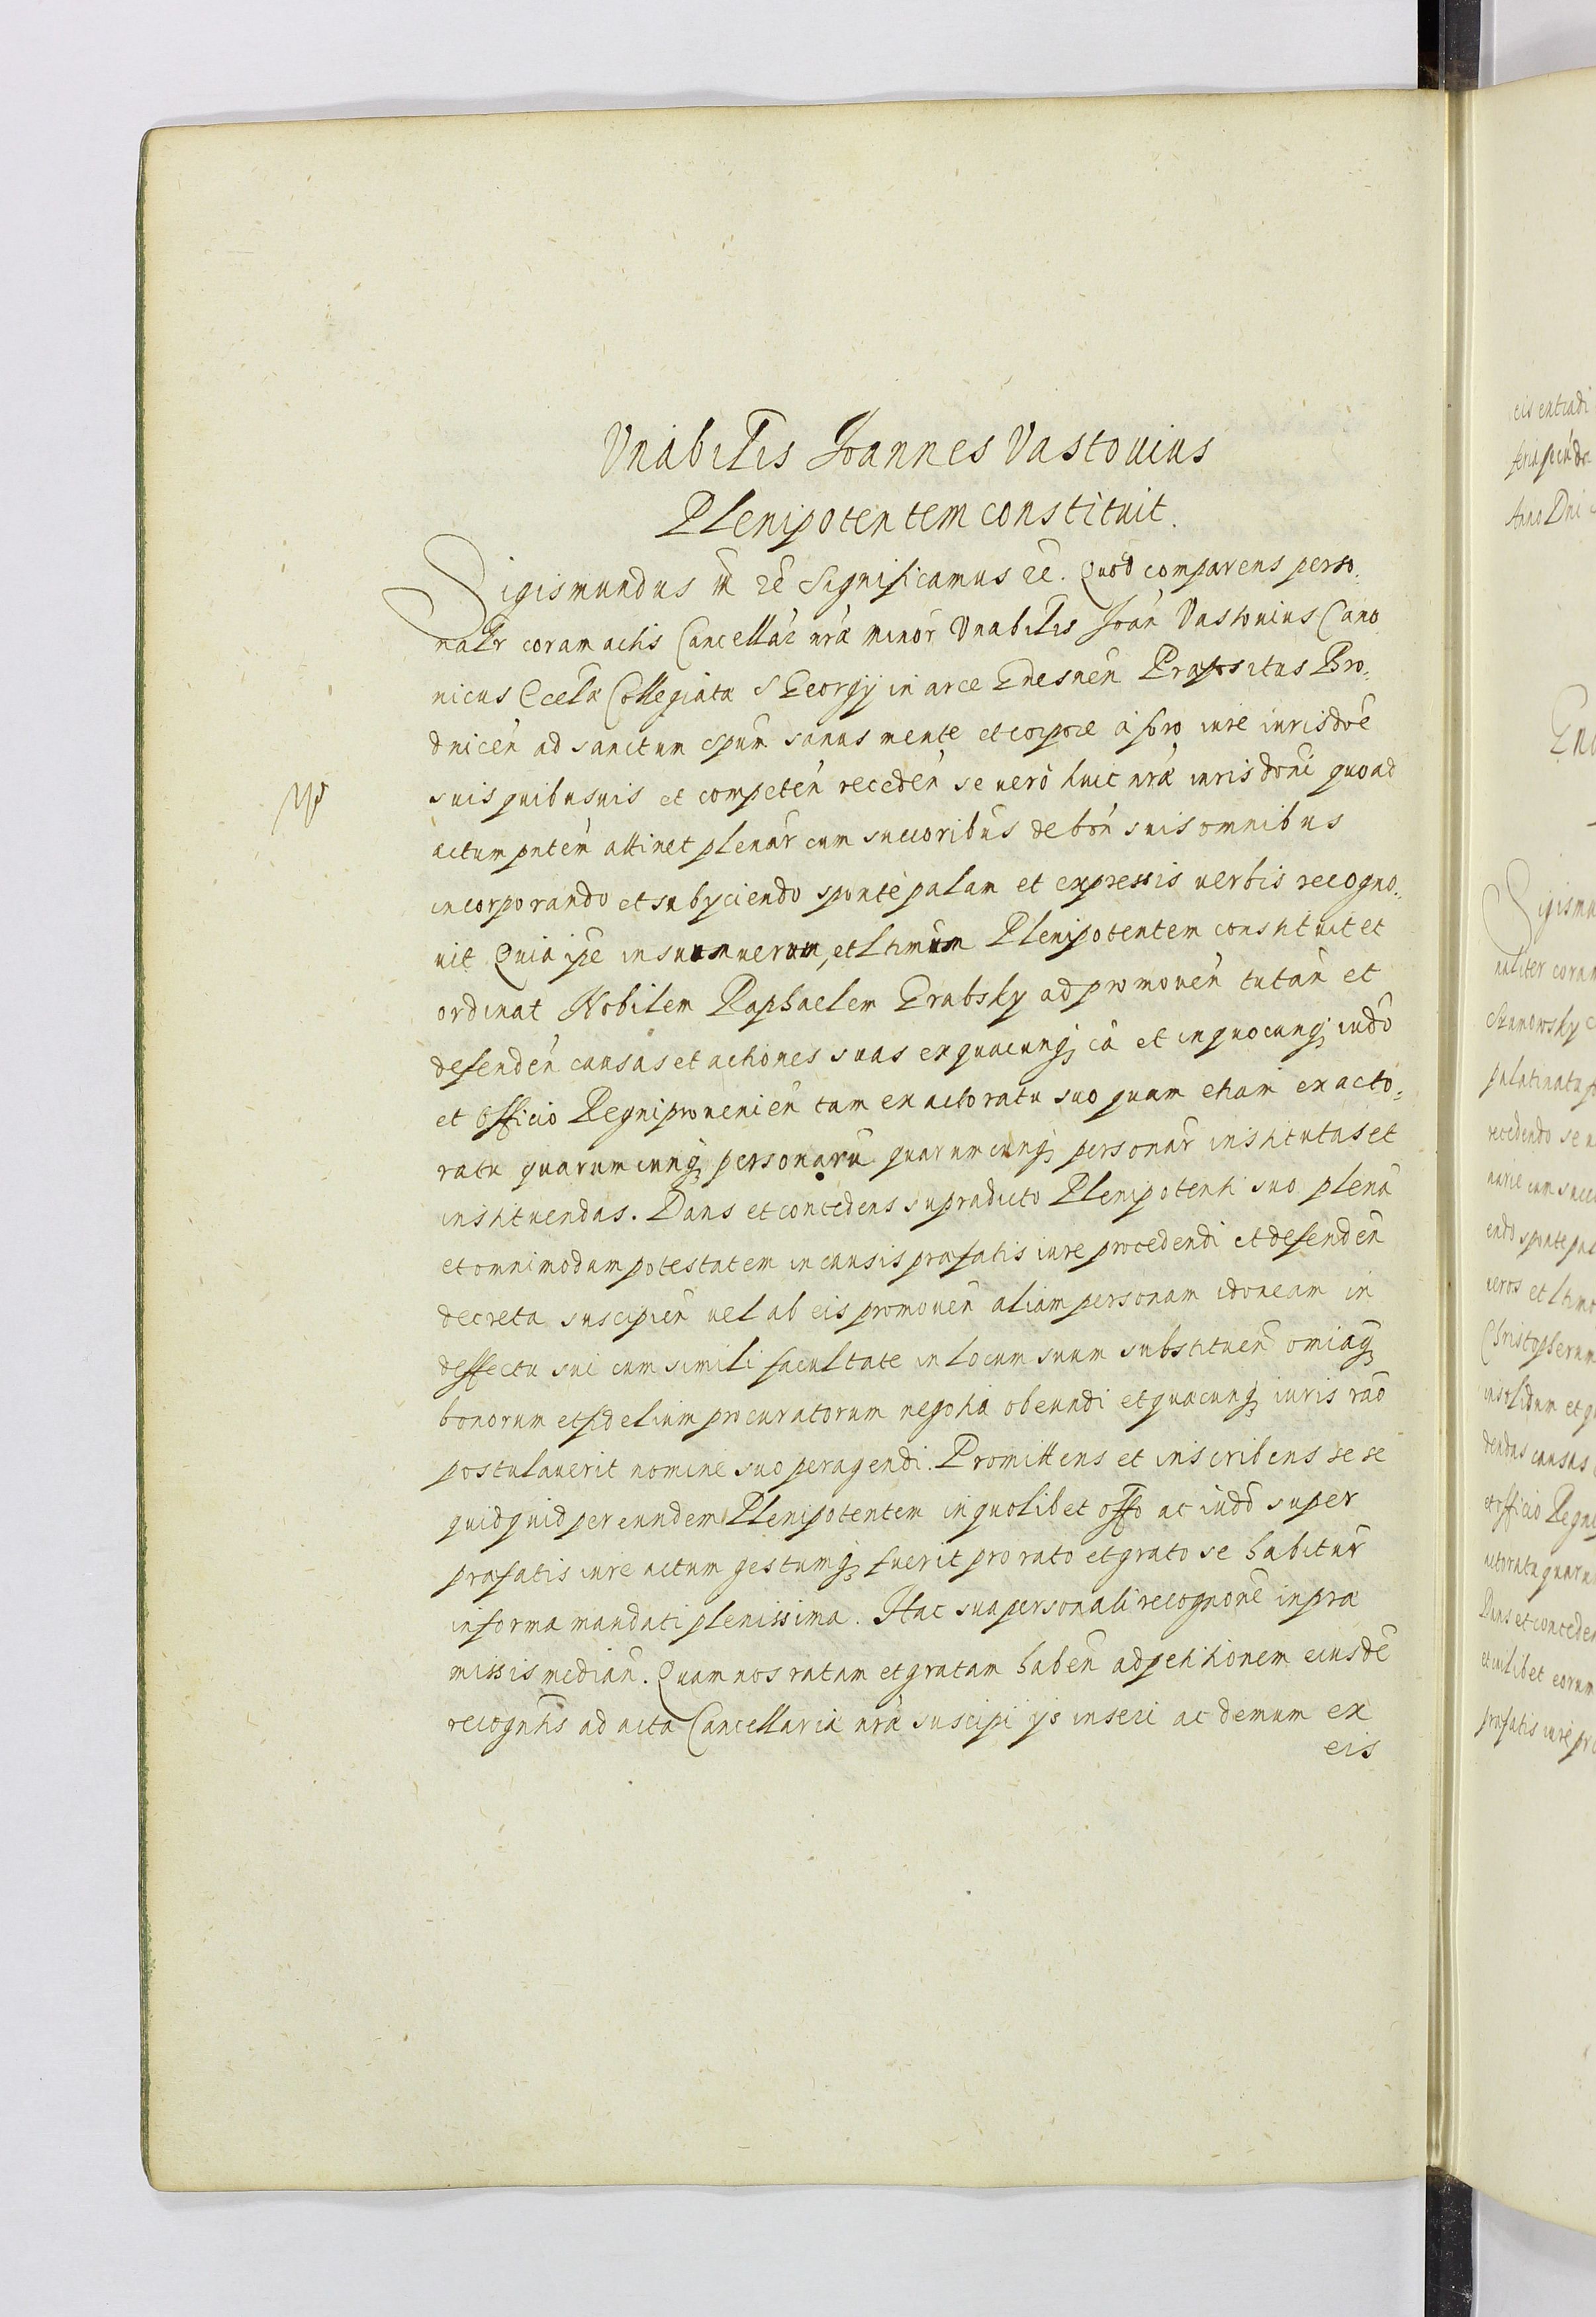 Vnabilis Joannes Vastouius
Plenipotentem constituit.
Sigismundus III ec Significamus ec. Quod comparens perso:
nalr coram actis Cancellar nra minor Vnabilis Joan Vastouius Cano
nicus Eccla Collegiata S Georgij in arce Gnesnen Præpositus Bro:
dnicen ad sanctum spum sanus mente et corpore à foro iure iurisdoe
suis quibusuis et competen receden se uerò huic nræ iurisdoni quoad
actum pntem attinet plenar cum succoribus de bon suis omnibus
incorporando et subijciendo sponte palam et expressis uerbis recogno:
uit Quia ipe in suum uerum, et ltimum Plenipotentem constituit et
ordinat Nobilem Raphaelem Grabsky ad promouen tutan et
defenden causas et actiones suas ex quacunq ca et in quocunq iudo
et Officio Regni prouenien tam ex actoratu suo quam etiam ex acto:
ratu quarumcunq personaru quarumcunq personar institutas et
instituendas. Dans et concedens supradicto Plenipotenti suo plena
et omnimodam potestatem in causis præfatis iure procedendi et defenden
decreta suscipien uel ab eis promouen aliam personam idoneam in
deffectu sui cum simili facultate in locum suum substituen omiaq
bonorum et fidelium procuratorum negotia obeundi et quacunq iuris rao
postulauerit nomine suo peragendi. Promittens et inscribens se se
quidquid per eundem Plenipotentem in quolibet offo ac iudo super
præfatis iure actum gestumq fuerit pro rato et grato se habitur
in forma mandati plenissima. Hac sua personali recognone in præ
missis median. Quam nos ratam et gratam haben ad petitionem eiusde
recogntis ad acta Cancellariæ nræ suscipi ijs inseri ac demum ex
eis